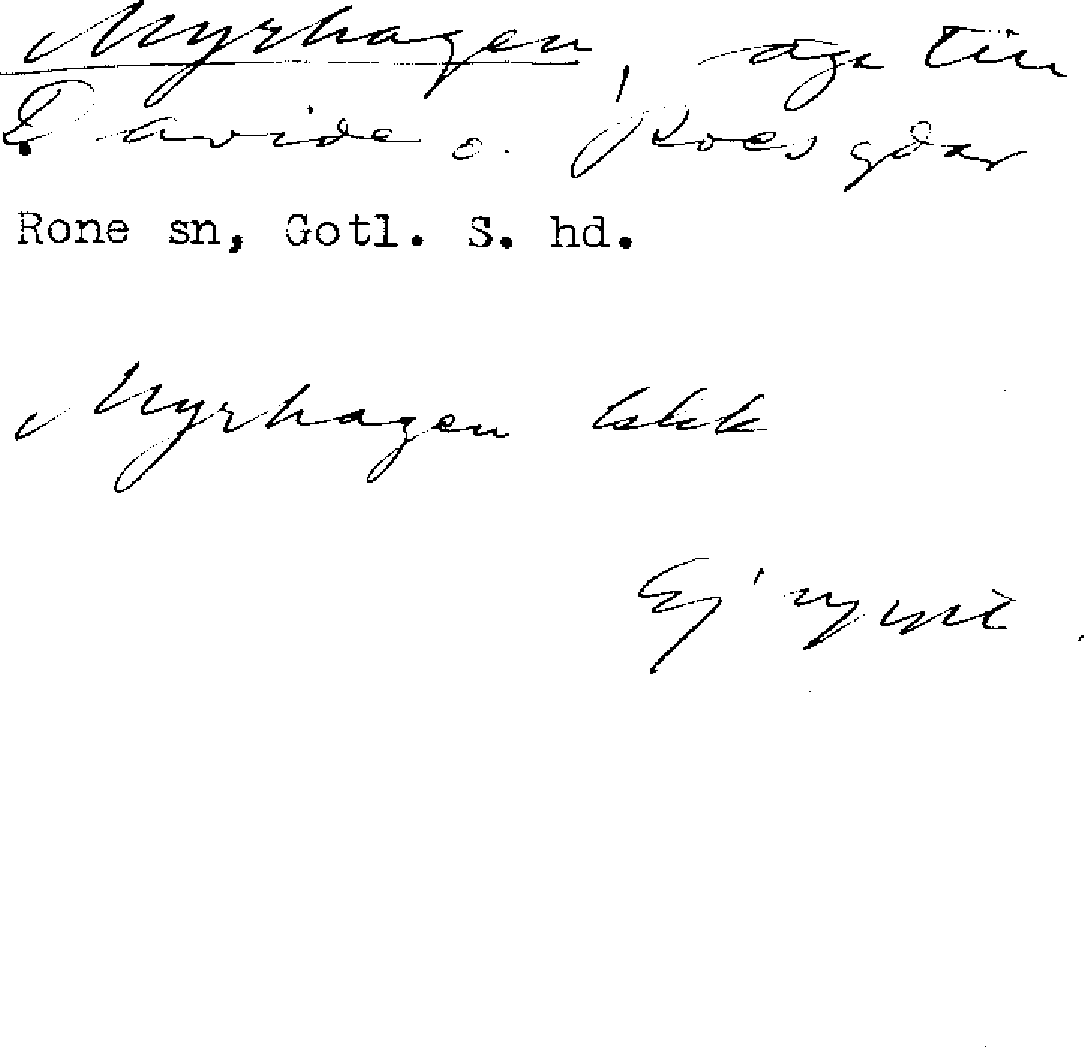 Myrhagen, äga till
Davide o. Roes gdar
Rone sn, Gotl. S. hd.
Myrhagen
Ej